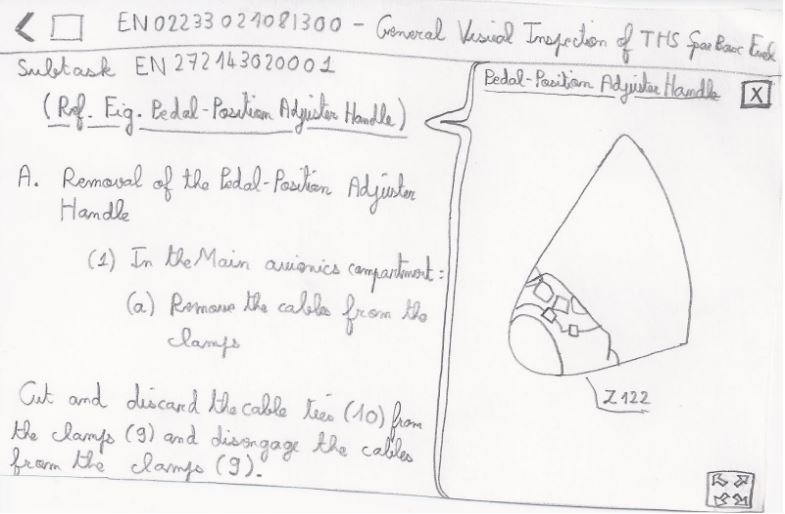 < EN02233021081300 - General Visual Inspection of THS Spar Box
Subtask EN272143020001
(Ref. Fig. Pedal-Position Adjuster Handle)
A. Removal of the Pedal-Position Adjuster
Handle
(1) In the Main avionics compartment:
(a) Remove the cables from the
clamps
Cut and discard the cable ties (10) from
the clamps (9) and disengage the cables
from the clamps (9).
Pedal-Position Adjuster Handle
X
Z122